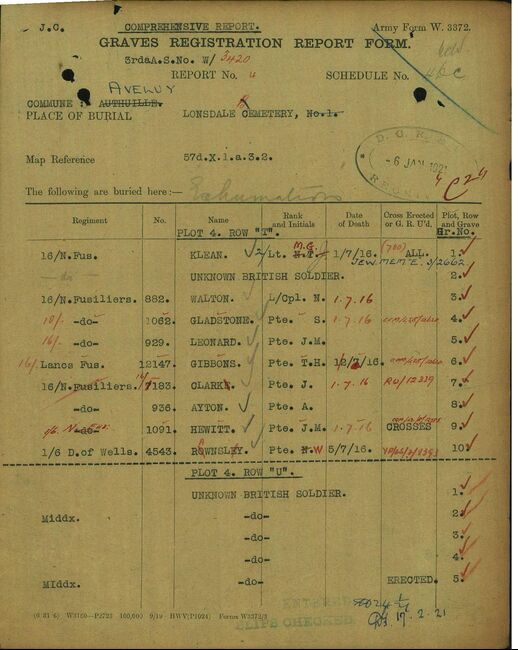 J.C. COMPREHENSIVE REPORT. Army Form W. 3372.
GRAVES REGISTRATION REPORT FORM.
3rdaA.S.No. W/ 3420
REPORT No. 4 SCHEDULE No.
AVELUY
COMMUNE : AUTHUILLE.
PLACE OF BURIAL LONSDALE CEMETERY, No.1.
D.G.R.&E.
- 6 JAN 1921
Map Reference 57d.X.1.a.3.2.
The following are buried here:— Exhumations
Regiment No. Name Rank and Initials Date of Death Cross Erected or G. R. U'd. Plot, Row and Grave
PLOT 4. ROW "T". Gr.No.
16/N.Fus. KLEAN. 2/Lt. H.T. M.G. 1/7/16. (700) ALL 1.
JEW. MEM'E. 3/2662
-do- UNKNOWN BRITISH SOLDIER. 2.
16/N.Fusiliers. 882. WALTON. L/Cpl. N. 1.7.16 3.
-do- 1062. GLADSTONE. Pte. S. 1.7.16 4.
16/. -do- 929. LEONARD. Pte. J.M. 5.
16/. Lancs Fus. 12147. GIBBONS. Pte. T.H. 12/7/16. 6.
16/N.Fusiliers. 16/1183. CLARKE. Pte. J. 1.7.16 RW/12339 7.
-do- 936. AYTON. Pte. A. 8.
-do- 1091. HEWITT. Pte. J.M. 1.7.16 CROSSES 9.
1/6 D.of Wells. 4543. ROWNSLEY. Pte. N.W 5/7/16. 10.
PLOT 4. ROW "U".
UNKNOWN BRITISH SOLDIER. 1.
Middx. -do- 2.
-do- 3.
-do- 4.
MIddx. -do- ERECTED. 5.
(6 31 6) W3150—P2723 100,000 9/19 HWV(P1021) Forms W3372/3
ENTERED
SLIPS CHECKED
17.2.21